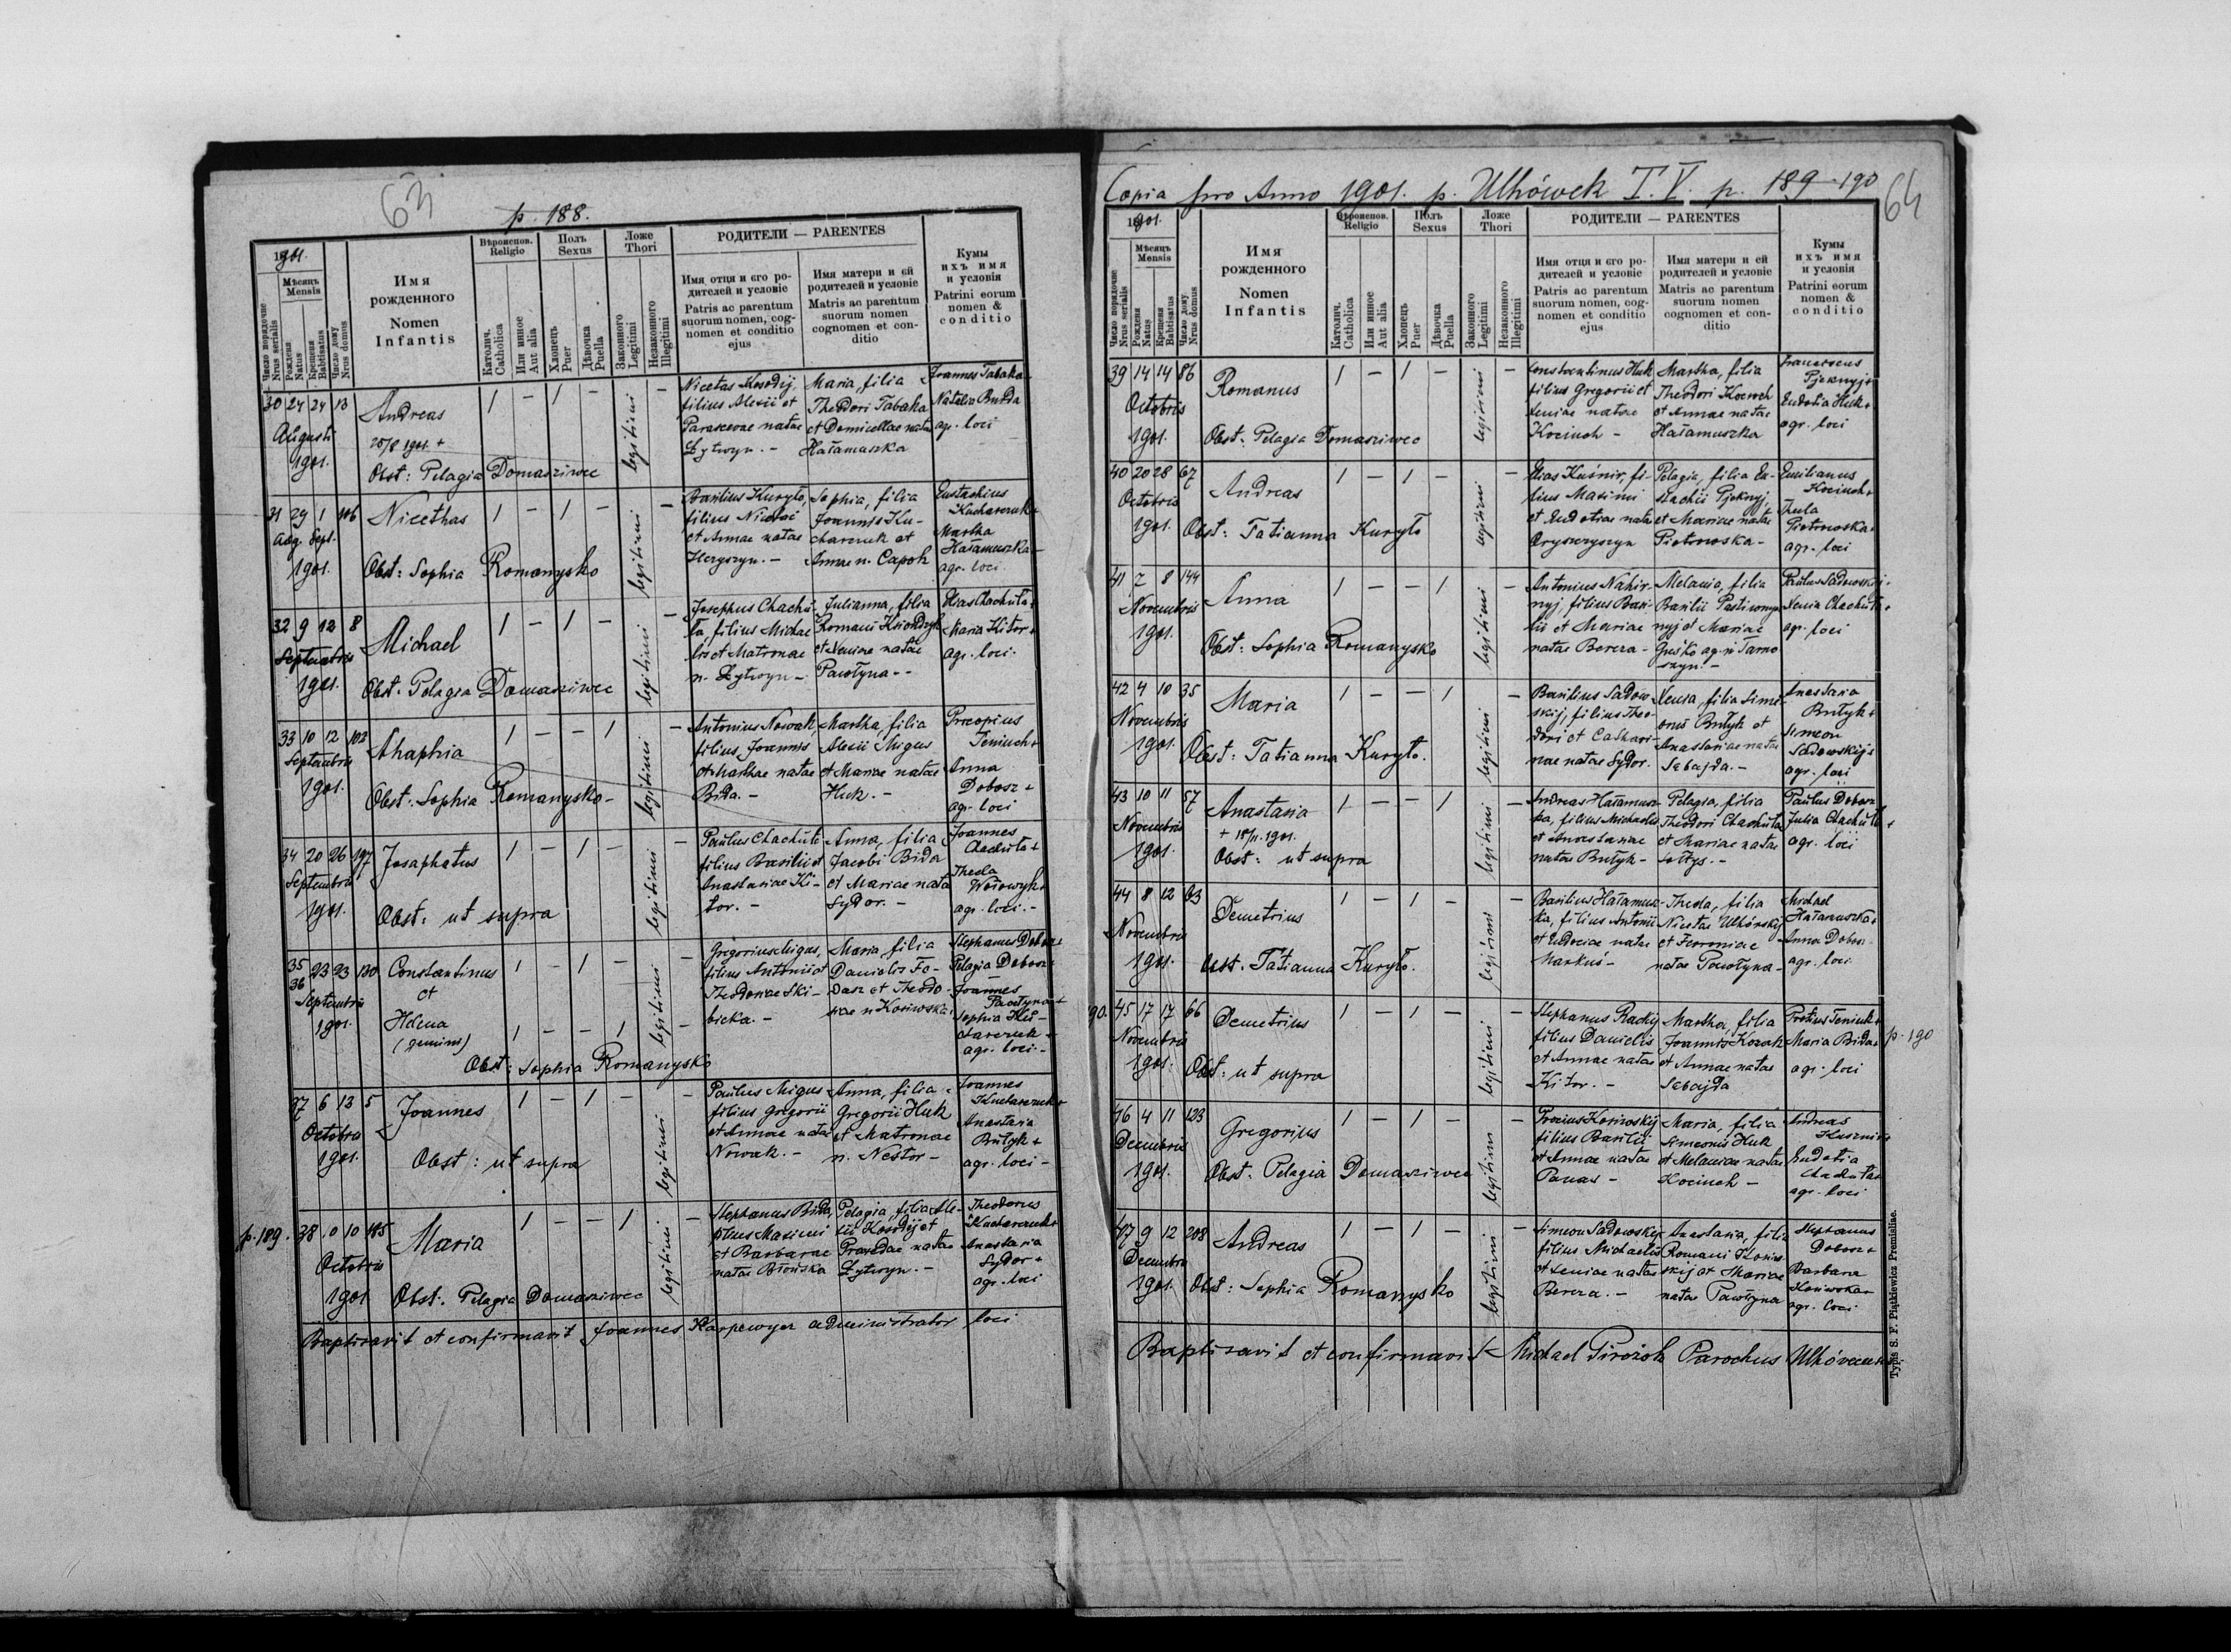 63
p. 188.
1901.
Мѣсяць
Mensis
Число порядочне
Nrus serialis
Рожденя
Natus
Крещеня
Babtisatus
Число дому
Nrus domus
Имя
рожденного
Nomen
Infantis
Вѣроиспов.
Religio
Католич.
Catholica
Или инное
Aut alia
Полъ
Sexus
Хлопець
Puer
Дѣвочка
Puella
Ложе
Thori
Законного
Legitimi
Незаконного
Illegitimi
РОДИТЕЛИ — PARENTES
Имя отця и єго ро-
дителей и условіе
Patris ac parentum
suorum nomen, cog-
nomen et conditio
ejus
Имя матери и ей
родителей и условіе
Matris ac parentum
suorum nomen
cognomen et con-
ditio
Кумы
ихъ имя
и условія
Patrini eorum
nomen &
conditio
30 24 24 13
Augusti
1901.
Andreas
28/8 1901. +
Obst: Pelagia Domasziwec
1 - 1 - legitimi -
Nicetas Kosodij,
filius Alexii et
Parascevae natae
Żytwyn. -
Maria, filia
Theodori Tabaka
et Domicellae natae
Hałamuszka
Joannes Tabaka
Natalia Burda
agr. loci
31 29 1 106
Aug. Sept.
1901.
Nicethas
Obst: Sophia Romanysko
1 - 1 - legitimi -
Basilius Kuryło,
filius Nicolai
et Annae natae
Hryszyn. -
Sophia, filia
Joannis Ku-
charczuk et
Annae n. Capok
Eustachius
Kucharczuk
Martha
Hałamuszka -
agr. loci
32 9 12 8
Septembris
1901.
Michael
Obst. Pelagia Domasziwec
1 - 1 - legitimi -
Josephus Chachu-
ła, filius Michae
lis et Matronae
n. Żytwyn -
Julianna, filia
Romani Kiondzyk
et Xeniae natae
Pawłyna - -
Elias Chachuła +
Maria Kitor +
agr. loci.
33 10 12 102
Septembris
1901.
Ahaphia
Obst: Sophia Romanysko -
1 - - 1 legitimi -
Antonius Nowak,
filius Joannis
et Marthae natae
Bida. -
Martha, filia
Alexii Migus
et Mariae natae
Huk. -
Procopius
Teniuch +
Anna
Dobosz +
agr. loci
34 20 26 197
Septembris
1901.
Josaphatus
Obst: ut supra
1 - 1 - legitimi -
Paulus Chachuła
filius Basilii et
Anastasiae Ki-
tor. -
Anna, filia
Jacobi Bida
et Mariae nata
Sydor. -
Joannes
Chachuła +
Thecla
Wołowyk +
agr. loci. -
35 23 23 130
36
Septembris
1901.
Constantinus
et
Helena
(gemini)
Obst: Sophia Romanysko
1 - 1 - legitimi -
1 - - 1 -
Gregorius Migus,
filius Antonii et
Theodoriae Ski-
bicka. -
Maria, filia
Danielis Fe-
dasz et Theodo-
siae n Koniwska
Stephanus Dobosz
Pelagia Dobosz
Joannes
Pawłyna +
Sophia
agr. loci -
37 6 13 5
Octobris
1901.
Joannes
Obst: ut supra
1 - 1 - legitimi -
Paulus Migus
filius Gregorii
et Annae natae
Nowak. -
Anna, filia
Gregorii Huk
et Matronae
n. Nestor -
Joannes
Kucharczuk +
Anastasia
Bułyk +
agr. loci -
p. 189.
38 10 10 185
Octobris
1901
Maria
Obst. Pelagia Domasziwec
1 - - 1 legitimi -
Stephanus Bida,
filius Maximi
et Barbarae
natae Błońska
Pelagia, filia Ale-
xii Kosodij et
Praxedae natae
Żytwyn. -
Theodorus
Kucharczuk +
Anastasia
Sydor +
agr. loci
Baptisavit et confirmavit Joannes Karpewycz administrator loci
Copia pro Anno 1901. p. Uhówek T. V. p. 189-190
64
1901.
Мѣсяць
Mensis
Число порядочне
Nrus serialis
Рожденя
Natus
Крещеня
Babtisatus
Число дому
Nrus domus
Имя
рожденного
Nomen
Infantis
Вѣроиспов.
Religio
Католич.
Catholica
Или инное
Aut alia
Полъ
Sexus
Хлопець
Puer
Дѣвочка
Puella
Ложе
Thori
Законного
Legitimi
Незаконного
Illegitimi
РОДИТЕЛИ — PARENTES
Имя отця и єго ро-
дителей и условіе
Patris ac parentum
suorum nomen, cog-
nomen et conditio
ejus
Имя матери и ей
родителей и условіе
Matris ac parentum
suorum nomen
cognomen et con-
ditio
Кумы
ихъ имя
и условія
Patrini eorum
nomen &
conditio
39 14 14 86
Octobris
1901.
Romanus
Obst: Pelagia Domasziwec
1 - 1 - legitimi -
Constantinus Huk
filius Gregorii et
Xeniae natae
Kociuch -
Martha, filia
Theodori Kociuch
et Annae natae
Hałamuszka
Franciscus
Pjeknyj +
Eudotia Huk +
agr. loci
40 20 28 67
Octobris
1901.
Andreas
Obst: Tatianna Kuryło
1 - 1 - legitimi -
Elias Kuśnir, fi-
lius Maximi
et Eudotiae natae
Oryszczyszyn
Pelagia, filia Eu-
stachii Pjeknyj,
et Mariae natae
Piotrowska -
Emilianus
Kociuch +
Thecla
Piotrowska +
agr. loci
41 7 8 144
Novembris
1901.
Anna
Obst: Sophia Romanysko
1 - - 1 legitimi -
Antonius Nahir-
nyj, filius Basi-
lii et Mariae
natae Bereza -
Melania, filia
Basilii
nyj et Mariae
Guśko ag. n Tarno
szyn. -
Paulus Sadowskij +
Xenia Chachuła +
agr. loci
42 4 10 35
Novembris
1901.
Maria
Obst: Tatianna Kuryło.
1 - - 1 legitimi -
Basilius Sadow-
skij, filius Theo-
dori et Cathari-
nae natae Sydor.
Xenia, filia Sime-
onis Bułyk et
Anastasiae natae
Sebajda. -
Anastasia
Bułyk +
Simeon
Sadowskij +
agr. loci
43 10 11 57
Novembris
1901.
Anastasia
+ 18/11. 1901.
Obst: ut supra
1 - - 1 legitimi -
Andreas Hałamusz-
ka, filius Michaelis
et Anastasiae
natae Bułyk -
Pelagia, filia
Theodori Chachuła
et Mariae natae
Sołtys. -
Paulus Dobosz
Julia Chachuła +
agr. loci
44 8 12 83
Novembris
1901.
Demetrius
Obst. Tatianna Kuryło.
1 - 1 - legitimi -
Basilius Hałamusz-
ka, filius Antonii
et Eudociae natae
Markuś -
Thecla, filia
Nicetae Uhówskij
et Fevroniae
natae Pawłyna -
Michael
Hałamuszka +
Anna Dobosz -
agr. loci
45 17 17 66
Novembris
1901.
Demetrius
Obst: ut supra
1 - 1 - legitimi -
Stephanus Rackij
filius Danielis
et Annae natae
Kitor. -
Martha, filia
Joannis Nowak
et Annae natae
Sebajda
Protius Teniuk +
Maria Bida +
agr. loci
p. 190
46 4 11 123
Decembris
1901.
Gregorius
Obst. Pelagia Domasziwec
1 - 1 - legitimi -
Procius Koniwskij
filius Basilii
et Annae natae
Panas -
Maria, filia
Simeonis Huk
et Melaniae natae
Kociuch -
Andreas
Kusznir +
Eudotia
Chachuła +
agr. loci
47 9 12 208
Decembris
1901.
Andreas
Obst: Sophia Romanysko
1 - 1 - legitimi -
Simeon Sadowskij
filius Michaelis
et Xeniae natae
Bereza. -
Anastasia, filia
Romani Koniw-
skij et Mariae
natae Pawłyna
Stephanus
Dobosz +
Barbara
Koniwska +
agr. loci
Baptisavit et confirmavit Michael Pirożok Parochus Uhówecensis
Typis S. F. Piątkiewicz Premisliae.